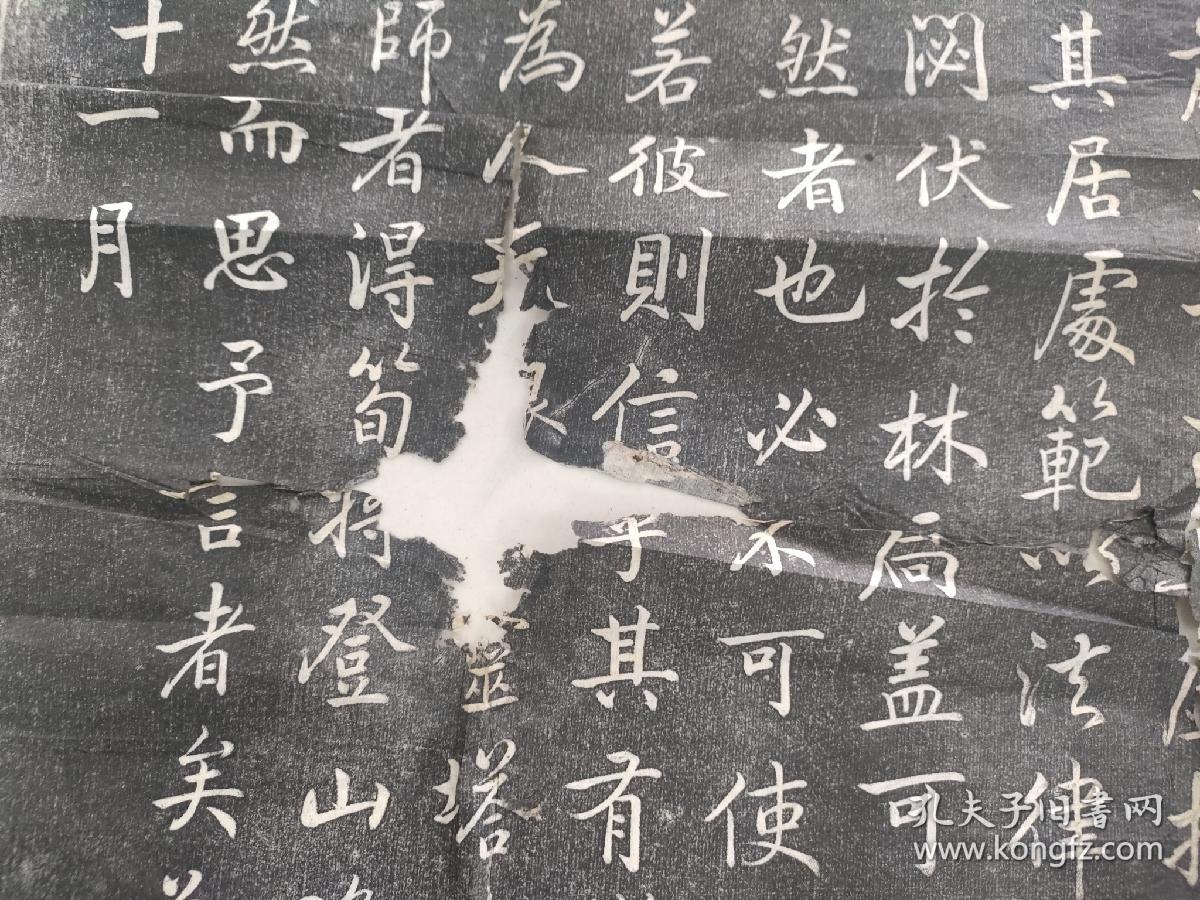 其居處範以法律
閟伏於林扃盖可
然者也必不可使
若彼則信乎其有
為人
靈塔
師者得筍将登山
然而思予言者矣
十一月
孔夫子旧書网
www.kongfz.com